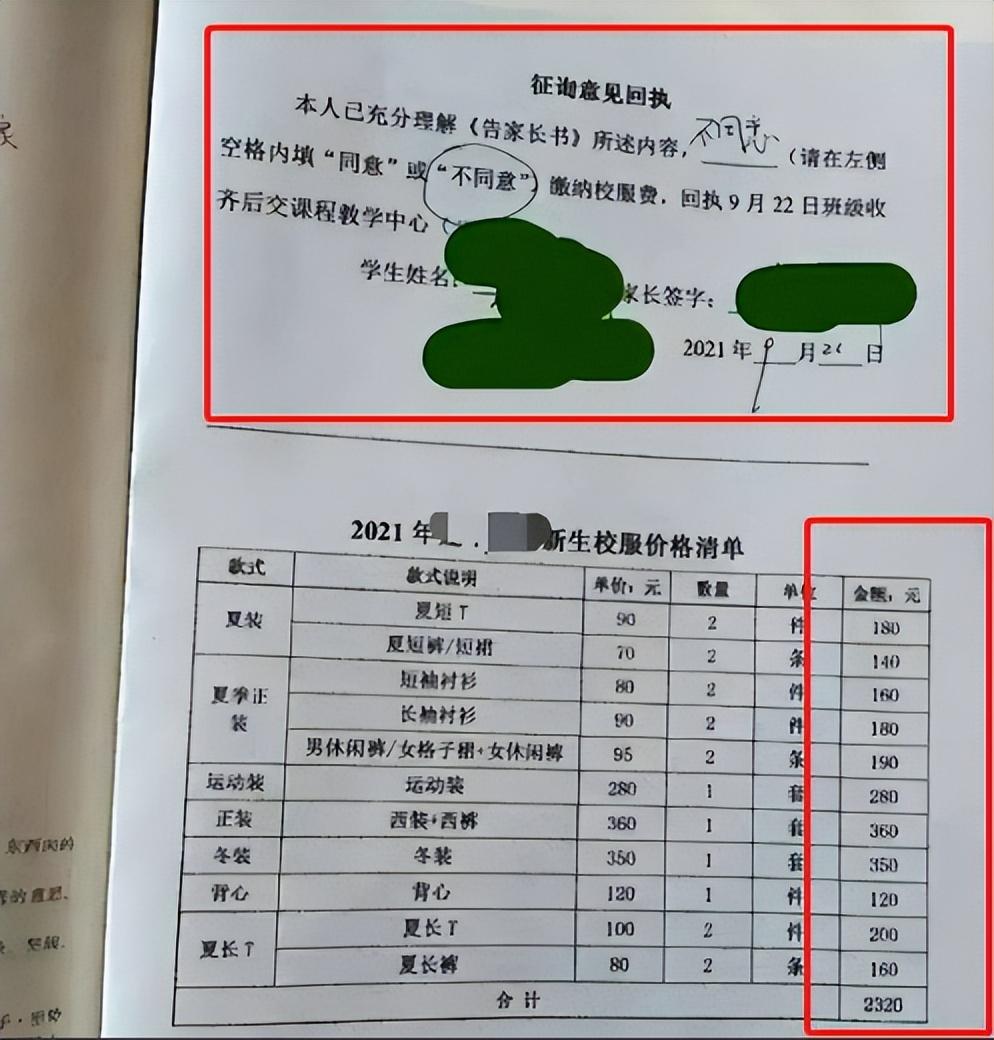 征询意见回执
本人已充分理解《告家长书》所述内容，不同意（请在左侧
空格内填“同意”或“不同意”）缴纳校服费，回执9月22日班级收
齐后交课程教学中心
学生姓名： 家长签字：
2021年9月 日
2021年 新生校服价格清单
款式 款式说明 单价：元 数量 单位 金额：元
夏装 夏短T 90 2 件 180
夏短裤/短裙 70 2 条 140
夏季正装 短袖衬衫 80 2 件 160
长袖衬衫 90 2 件 180
男休闲裤/女格子裙+女休闲裤 95 2 条 190
运动装 运动装 280 1 套 280
正装 西装+西裤 360 1 套 360
冬装 冬装 350 1 套 350
背心 背心 120 1 件 120
夏长T 夏长T 100 2 件 200
夏长裤 80 2 条 160
合计 2320